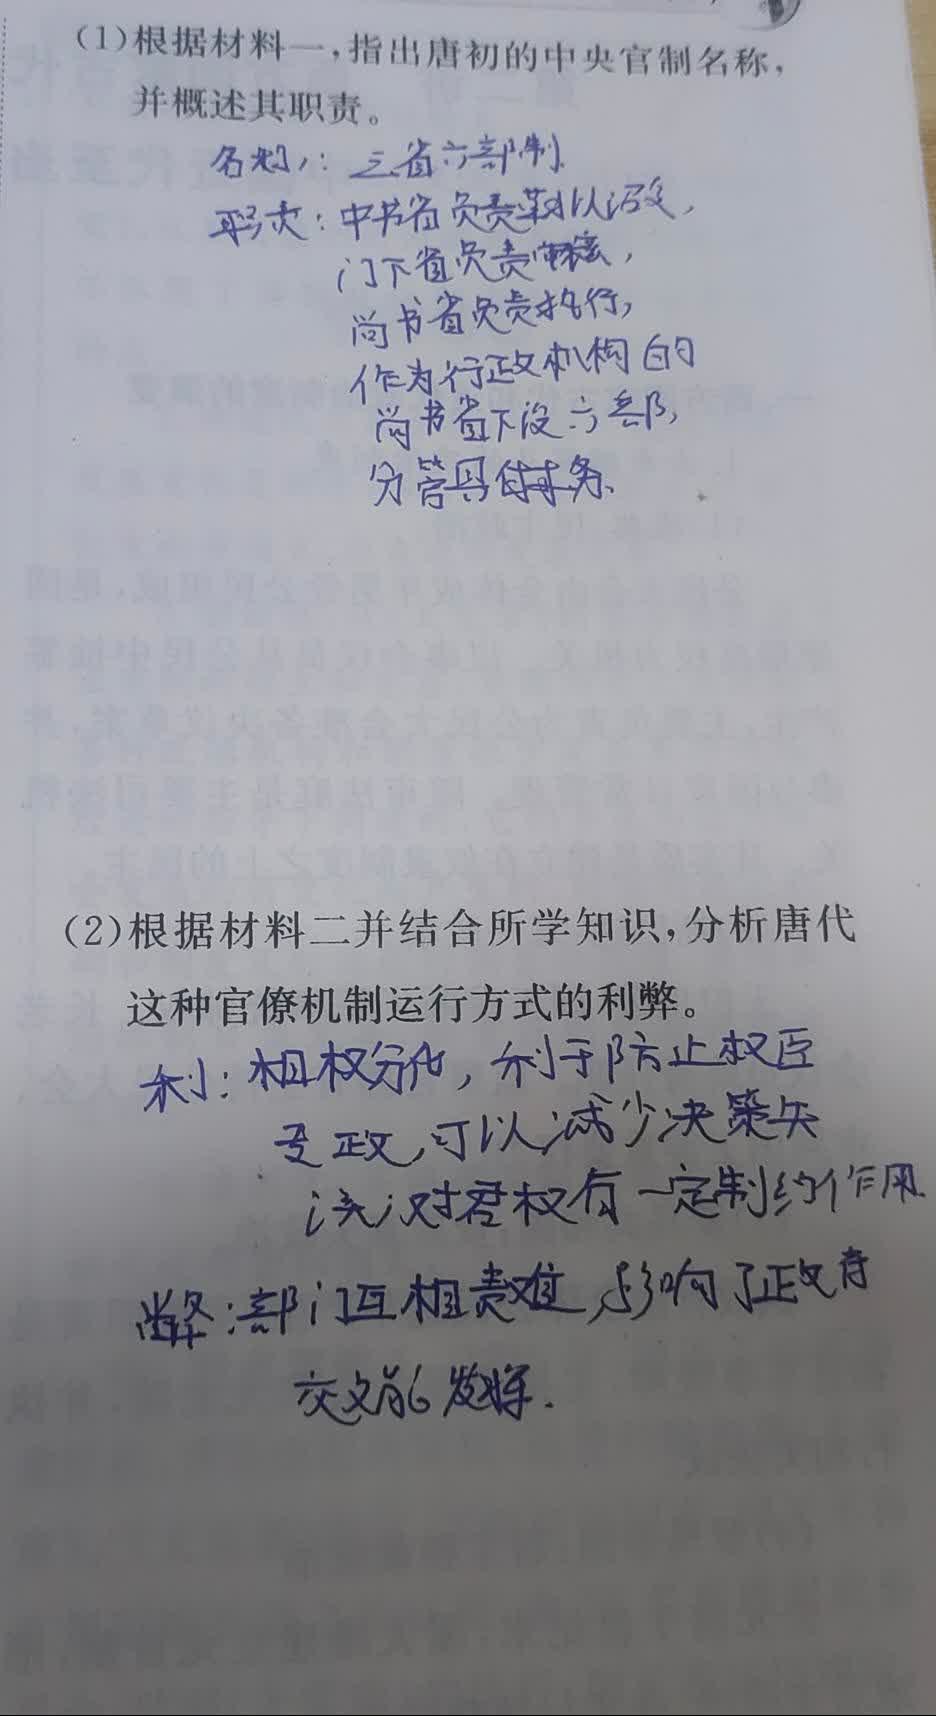 (1)根据材料一,指出唐初的中央官制名称,
并概述其职责。
名称:三省六部制.
职责:中书省负责草拟政
门下省负责审核,
尚书省负责执行,
作为行政机构的
尚书省下设六部,
分管具体事务.
(2)根据材料二并结合所学知识,分析唐代
这种官僚机制运行方式的利弊。
利:相权分化,利于防止权臣
专政,可以减少决策失
误;对君权有一定制约作用.
弊:部门互相责难,影响了政府
效能发挥.